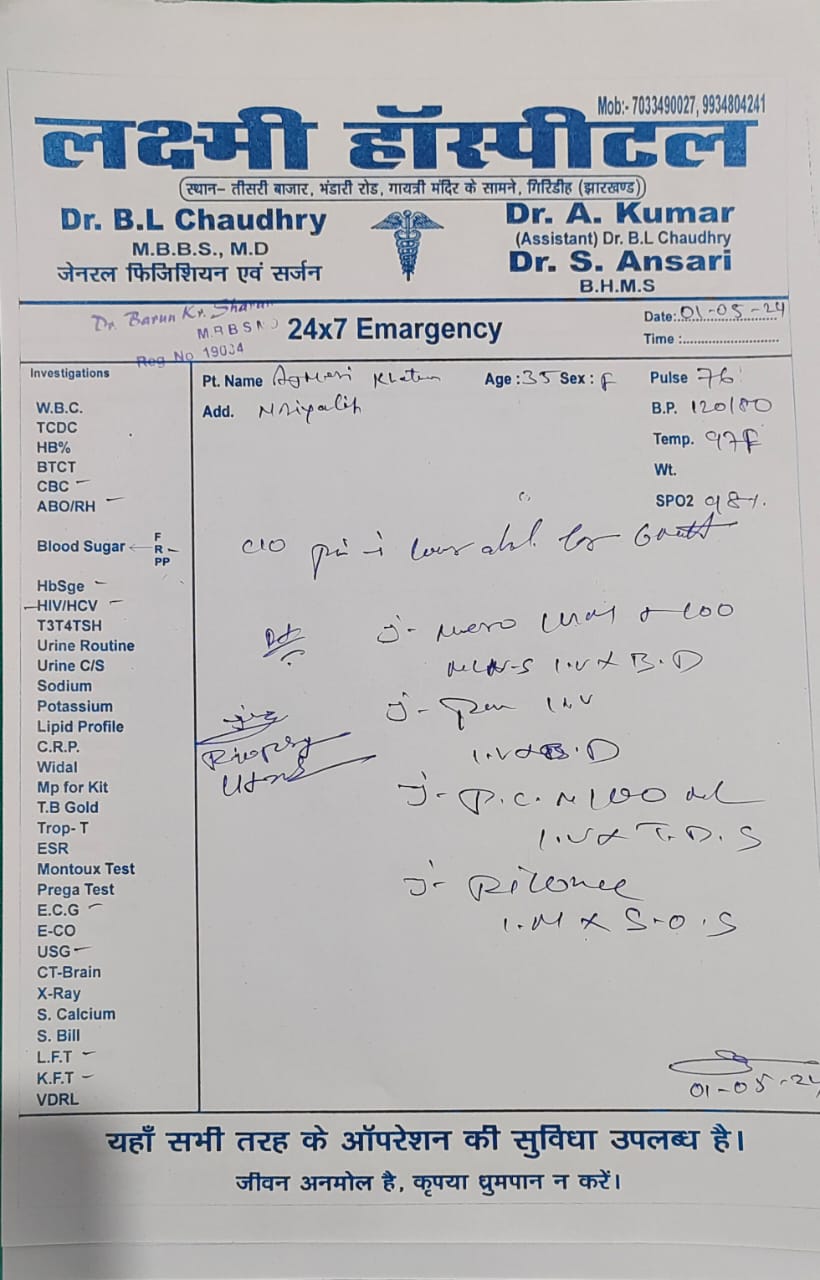 Mob:- 7033490027, 9934804241
लक्ष्मी हॉस्पीटल
स्थान- तीसरी बाजार, भंडारी रोड, गायत्री मंदिर के सामने, गिरिडीह (झारखण्ड)
Dr. B.L Chaudhry
M.B.B.S., M.D
जेनरल फिजिशियन एवं सर्जन
Dr. A. Kumar
(Assistant) Dr. B.L Chaudhry
Dr. S. Ansari
B.H.M.S
Dr. Barun Kr.
Reg No 19004
24x7 Emargency
Date:.01-05-24
Time :
Investigations
W.B.C.
TCDC
HB%
BTCT
CBC
ABO/RH
Blood Sugar F R PP
HbSge
HIV/HCV
T3T4TSH
Urine Routine
Urine C/S
Sodium
Potassium
Lipid Profile
C.R.P.
Widal
Mp for Kit
T.B Gold
Trop- T
ESR
Montoux Test
Prega Test
E.C.G
E-CO
USG
CT-Brain
X-Ray
S. Calcium
S. Bill
L.F.T
K.F.T
VDRL
Pt. Name Khatun Age :35 Sex : F
Add.
Pulse 76
B.P. 120/80
Temp. 97F
Wt.
SPO2 98%.
C/O
J- + 100
I.V x B.D
J- I.V
I.V x B.D
J- 100 ml
I.V x T.D.S
J-
I.M x S.O.S
01-05-24
यहाँ सभी तरह के ऑपरेशन की सुविधा उपलब्ध है।
जीवन अनमोल है, कृपया ध्रुमपान न करें।